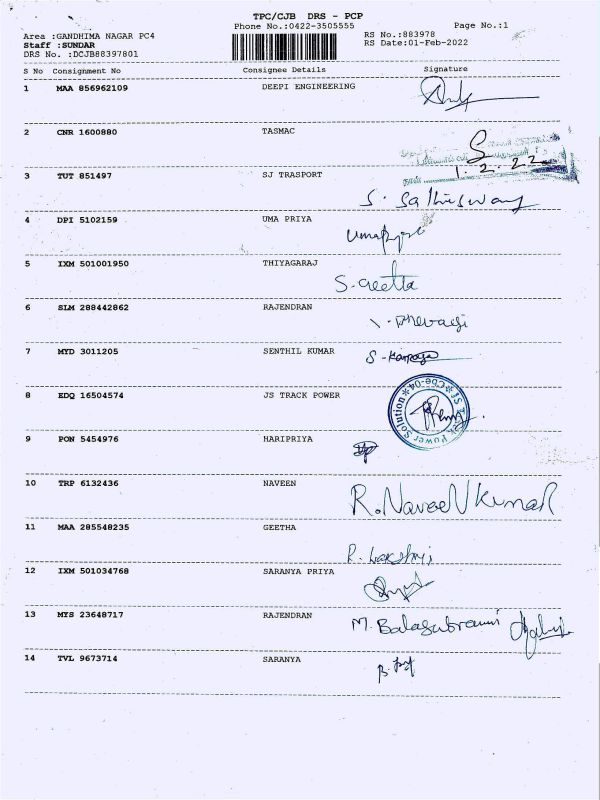 TPC/CJB DRS - PCP
Phone No.:0422-3505555 Page No.:1
Area :GANDHIMA NAGAR PC4 RS No.:883978
Staff :SUNDAR RS Date:01-Feb-2022
DRS No. :DCJB88397801
S No Consignment No Consignee Details Signature
1 MAA 856962109 DEEPI ENGINEERING
2 CNR 1600880 TASMAC
1.2.22
3 TUT 851497 SJ TRASPORT
S. Sathiswary
4 DPI 5102159 UMA PRIYA
Umapriya
5 IXM 501001950 THIYAGARAJ
S. Geetha
6 SLM 288442862 RAJENDRAN
7 MYD 3011205 SENTHIL KUMAR
8 EDQ 16504574 JS TRACK POWER
JS Track Power Solution * Cbe-04 *
9 PON 5454976 HARIPRIYA
10 TRP 6132436 NAVEEN
R. Naveen Kumar
11 MAA 285548235 GEETHA
12 IXM 501034768 SARANYA PRIYA
13 MYS 23648717 RAJENDRAN
M. Balasubramni
14 TVL 9673714 SARANYA